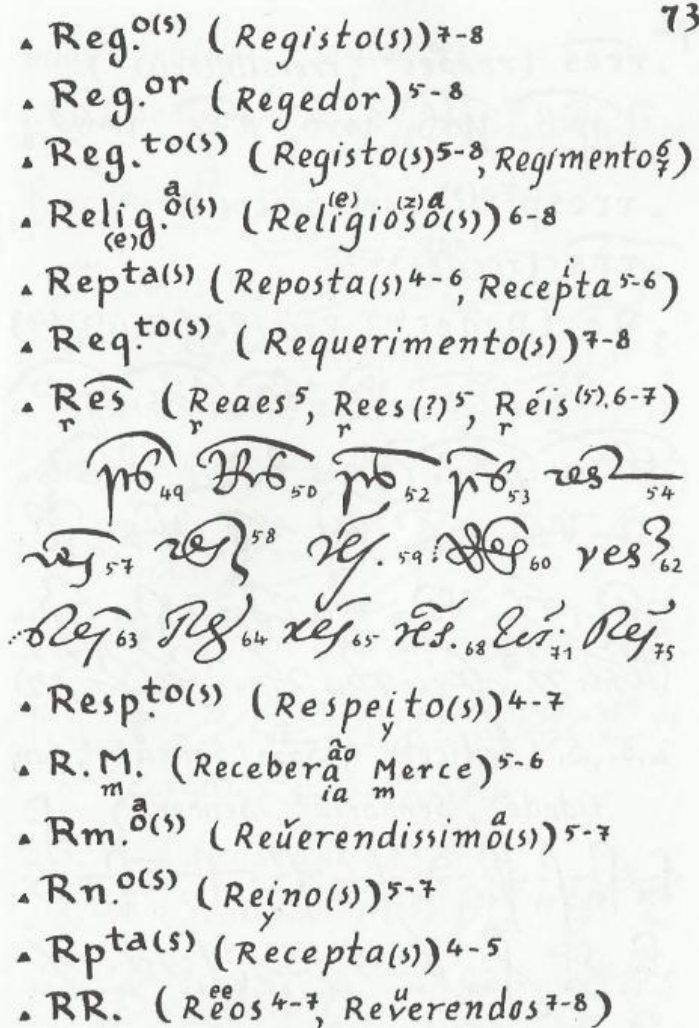 73
▴ Reg.o(s) (Registo(s))7-8
▴ Reg.or (Regedor)5-8
▴ Reg.to(s) (Registo(s)5-8, Regimento 6 7)
▴ Relig.a o(s) (e) (Religioso(s)) (e) (z) a 6-8
▴ Repta(s) (Reposta(s)4-6, Recepta i 5-6)
▴ Req.to(s) (Requerimento(s))7-8
▴ Res r (Reaes r 5, Rees r (?)5, Réis r (5).6-7)
49 50 52 53 res 54
res 57 res 58 res. 59 60 res 62
Res 63 64 res 65 res. 68 71 Res 75
▴ Resp.to(s) (Respeito(s) y)4-7
▴ R. M. m (Receberá ão ia Merce m)5-6
▴ Rm.a o(s) (Reuerendissimo(s) v a)5-7
▴ Rn.o(s) (Reino(s) y)5-7
▴ Rpta(s) (Recepta(s))4-5
▴ RR. (Reos ee 4-7, Reverendos u 7-8)